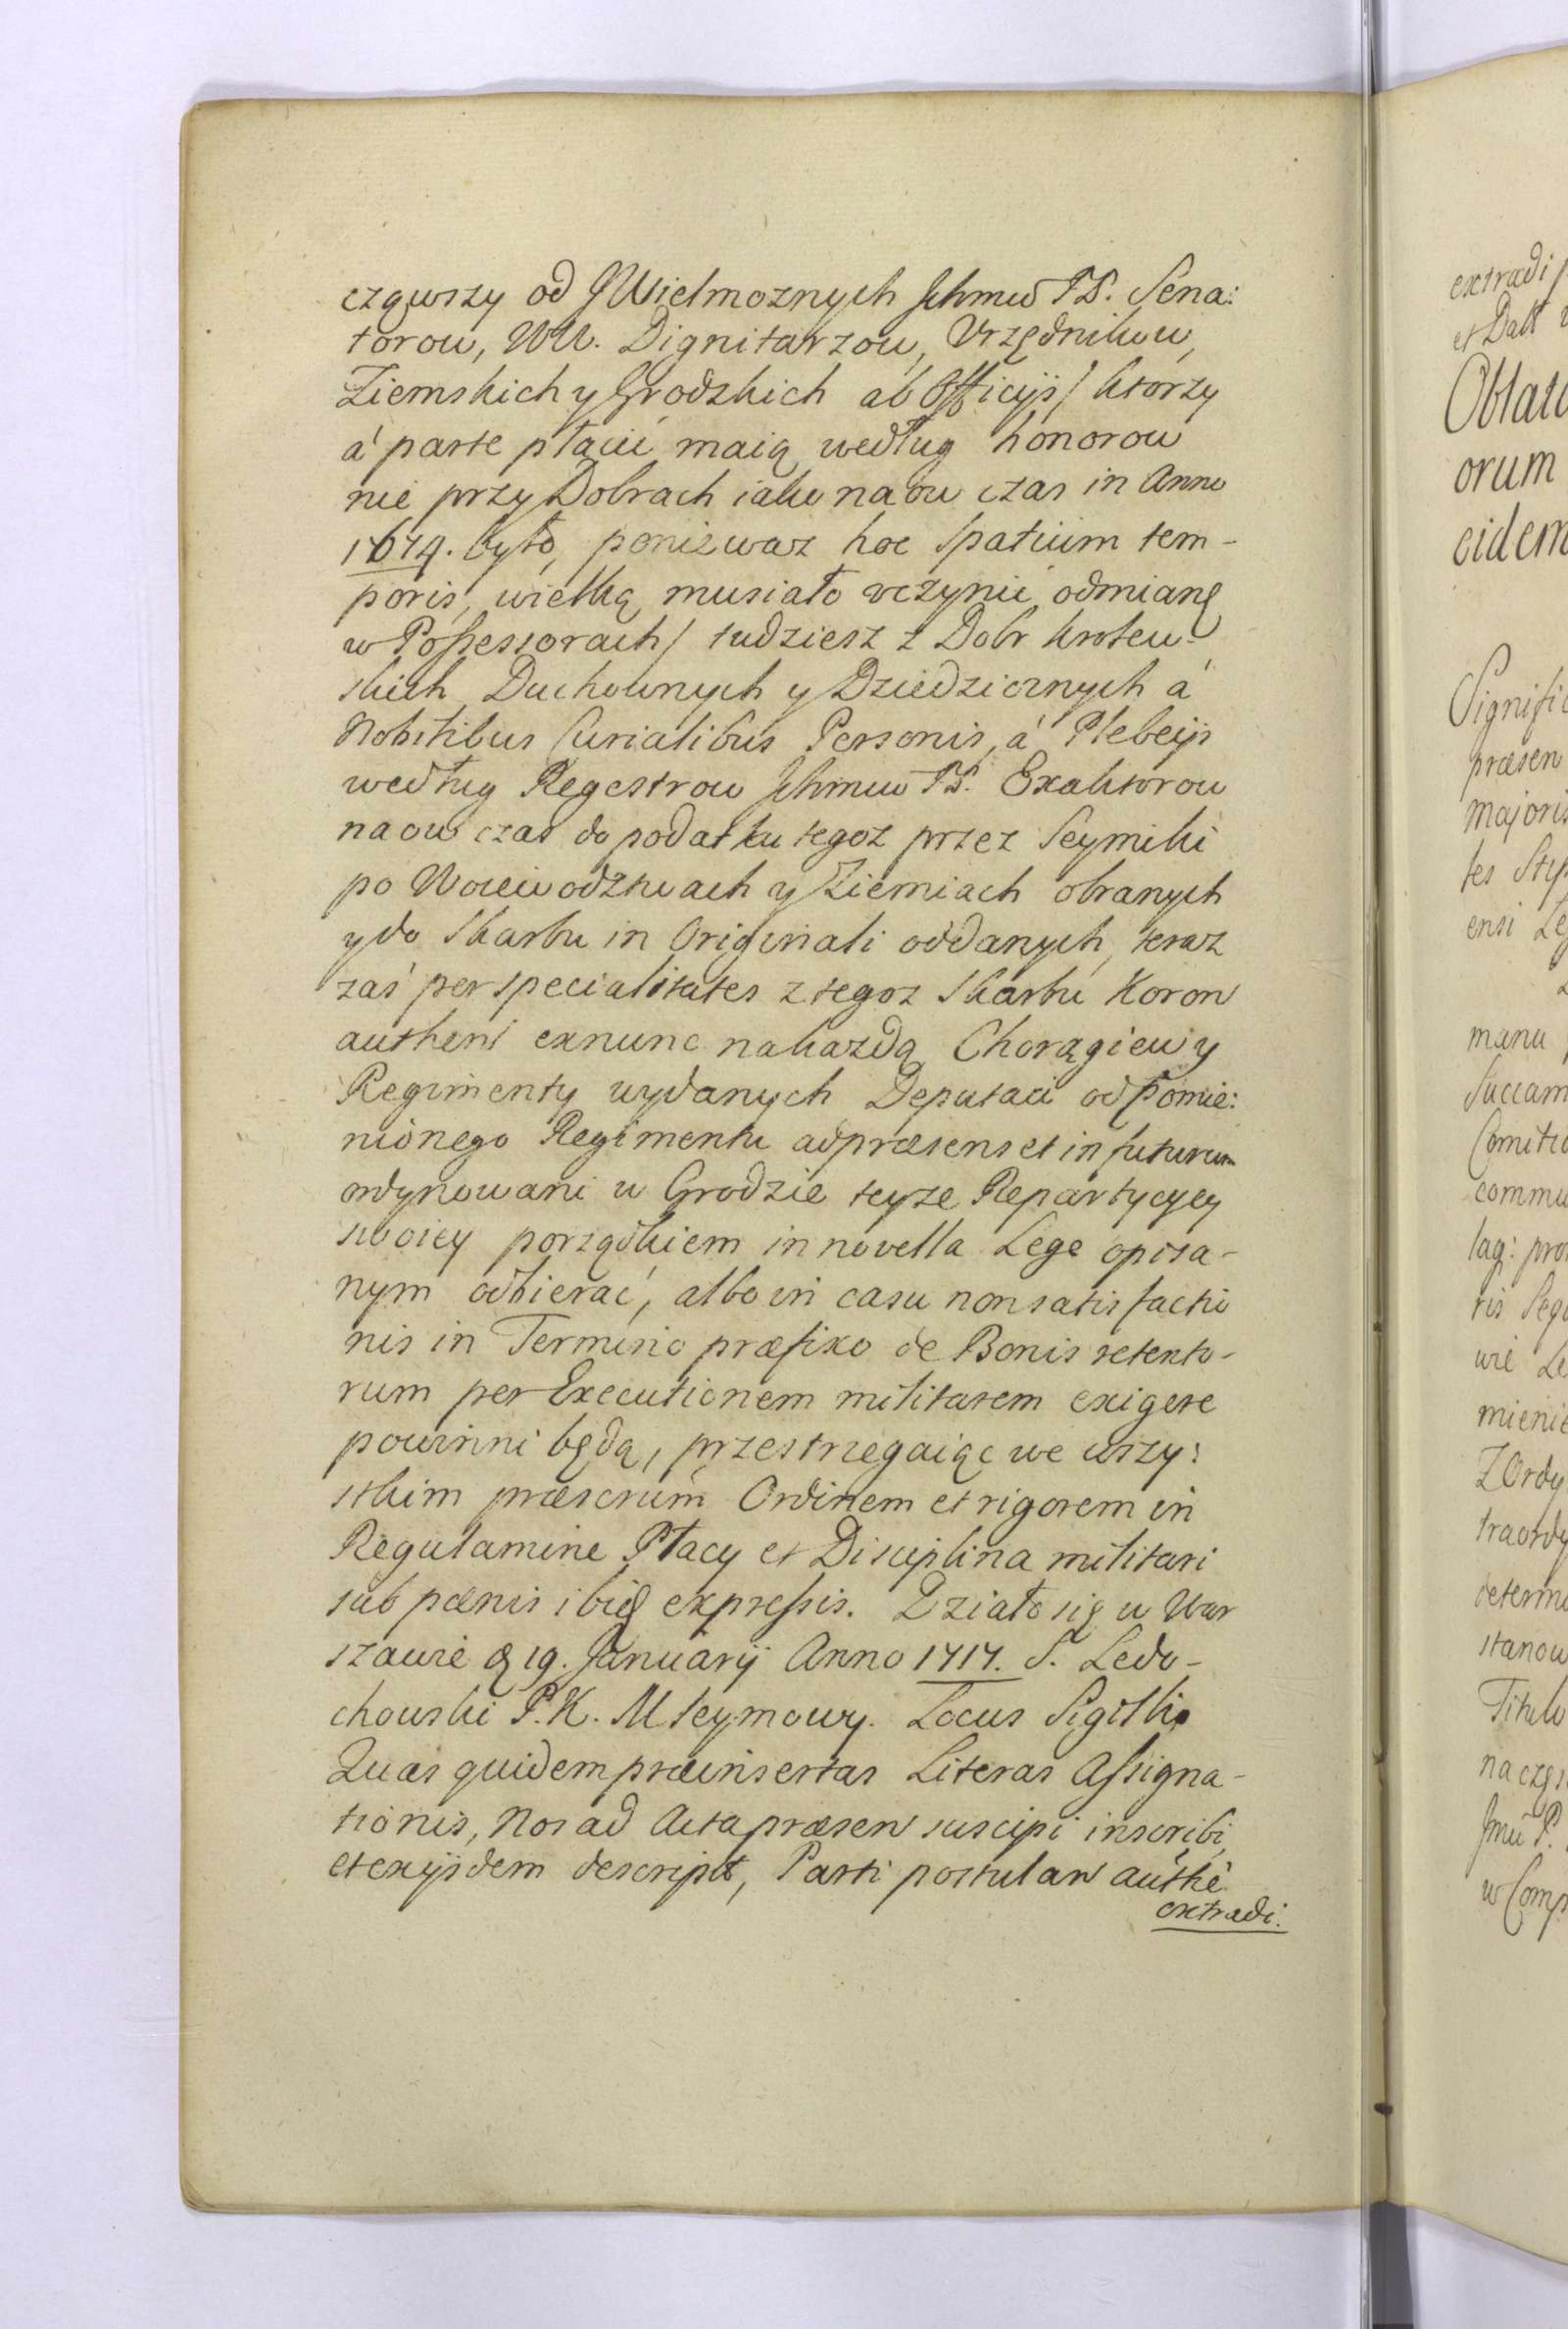 cząwszy od JWielmoznych Jchmw PP. Sena:
torow, WW. Dignitarzow, Vrzędnikow,
Ziemskich y Grodzkich ab Officijs/ ktorzy
á parte płacić maią według honorow
nie przy Dobrach iako na ow czas in Anno
1674. było, poniewaz hoc Spatium tem-
poris, wielką musiało vczynić odmianę
w Possessorach/ tudziesz z Dobr Krolew-
skich Duchownych y Dziedzicznych á
Nobilibus Curialibus Personis, á Plebeijs
według Regestrow Jchmw PP. Exaktorow
na ow czas do podatku tegoz przez Seymiki
po Woiewodztwach y Ziemiach obranych
y do Skarbu in Originali oddanych, teraz
zaś per specialitates z tegoz Skarbu Koron
authent exnunc na kazdą Chorągiew y
Regimenty wydanych Deputaci od pomie:
nionego Regimentu ad præsens et in futurum
ordynowani w Grodzie teyze Repartycyey
swoiey porządkiem in novella Lege opisa-
nym odbierać, albo in casu non satisfactio
nis in Termino præfixo de Bonis retento-
rum per Executionem militarem exigere
powinni będą, przestrzegaiąc we wszy:
stkim præscrum Ordinem et rigorem in
Regulamine Płacy et Disciplina militari
sub pœnis ibid expressis. Działo się w War
szawie d 19. Januarij Anno 1717. S. Ledo-
chowski P.K. M Seymowy. Locus Sigilli.
Quas quidem præinsertas Literas Assigna-
tionis, Nos ad Acta præsen suscipi inscribi,
et ex ijsdem descript, Parti postulan authē
extradi.
extradi
et Datt
Oblat
orum
eidem
Signific
præsen
majoris
tes Stip
ensi Le
manu
Succam
Comitio
commu
lag: pro
ris Seq
wie Le
mienie
Z Ordy
traordy
determi
stanow
Titulo
na częs
Jmu P.
w Comp